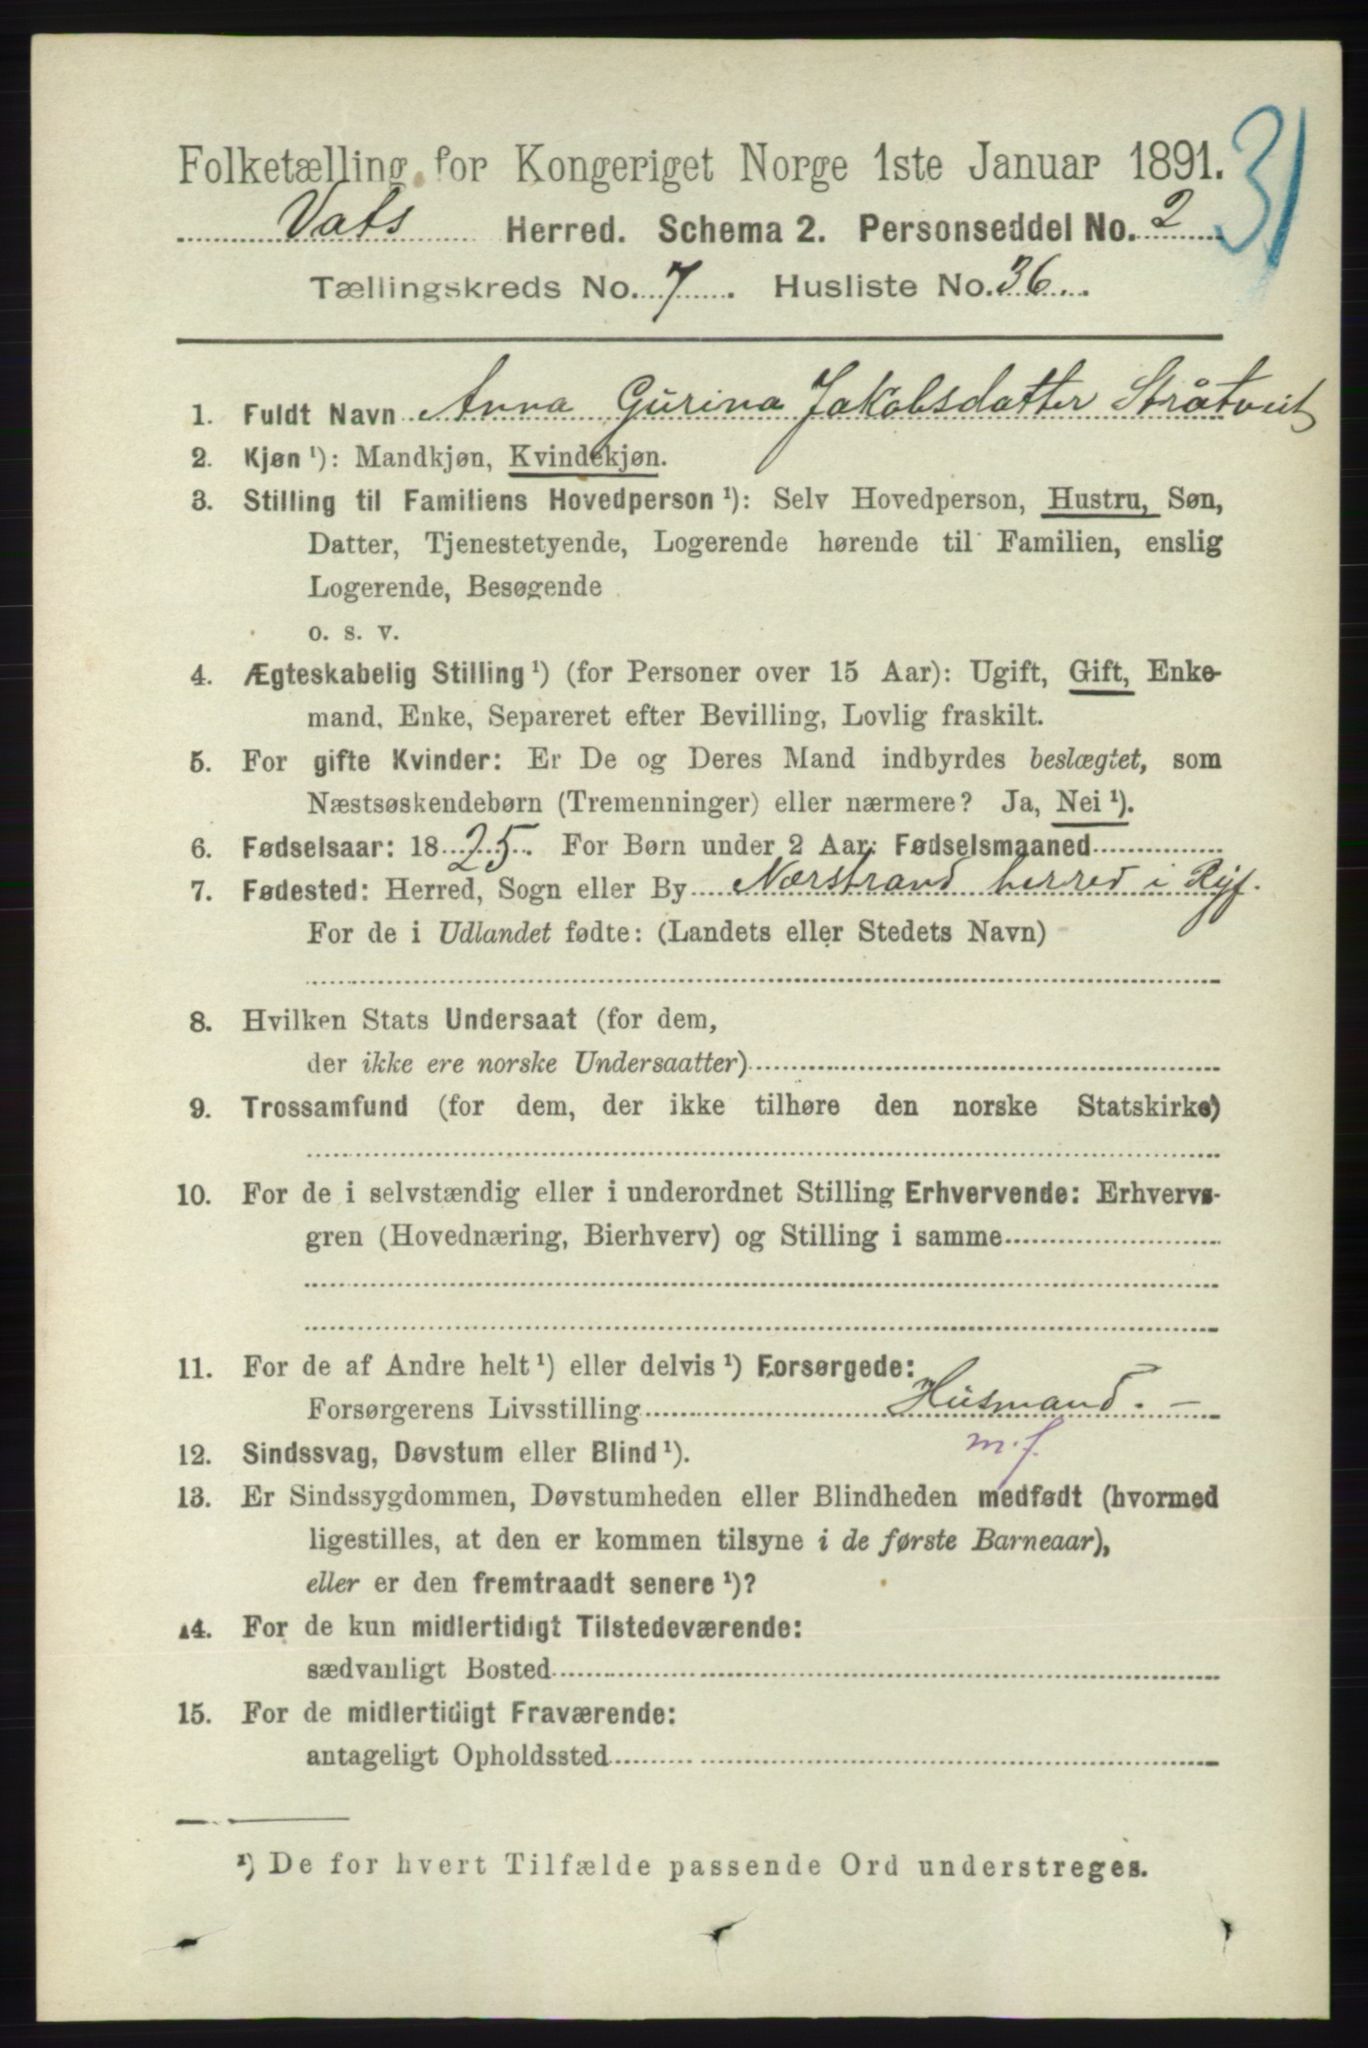 Folketælling for Kongeriget Norge 1ste Januar 1891.
31
Vats Herred. Schema 2. Personseddel No. 2
Tællingskreds No. 7. Husliste No. 36.
1. Fuldt Navn Anna Gurina Jakobsdatter Ståtveit
2. Kjøn ¹): Mandkjøn, Kvindekjøn.
3. Stilling til Familiens Hovedperson ¹): Selv Hovedperson, Hustru, Søn,
Datter, Tjenestetyende, Logerende hørende til Familien, enslig
Logerende, Besøgende
o. s. v.
4. Ægteskabelig Stilling ¹) (for Personer over 15 Aar): Ugift, Gift, Enke-
mand, Enke, Separeret efter Bevilling, Lovlig fraskilt.
5. For gifte Kvinder: Er De og Deres Mand indbyrdes beslægtet, som
Næstsøskendebørn (Tremenninger) eller nærmere? Ja, Nei ¹).
6. Fødselsaar: 1825. For Børn under 2 Aar: Fødselsmaaned
7. Fødested: Herred, Sogn eller By Nærstrand herred i Ryf.
For de i Udlandet fødte: (Landets eller Stedets Navn)
8. Hvilken Stats Undersaat (for dem,
der ikke ere norske Undersaatter)
9. Trossamfund (for dem, der ikke tilhøre den norske Statskirke)
10. For de i selvstændig eller i underordnet Stilling Erhvervende: Erhvervs-
gren (Hovednæring, Bierhverv) og Stilling i samme
11. For de af Andre helt ¹) eller delvis ¹) Forsørgede:
Forsørgerens Livsstilling Husmand. —
m.f.
12. Sindssvag, Døvstum eller Blind ¹).
13. Er Sindssygdommen, Døvstumheden eller Blindheden medfødt (hvormed
ligestilles, at den er kommen tilsyne i de første Barneaar),
eller er den fremtraadt senere ¹)?
14. For de kun midlertidigt Tilstedeværende:
sædvanligt Bosted
15. For de midlertidigt Fraværende:
antageligt Opholdssted
¹) De for hvert Tilfælde passende Ord understreges.